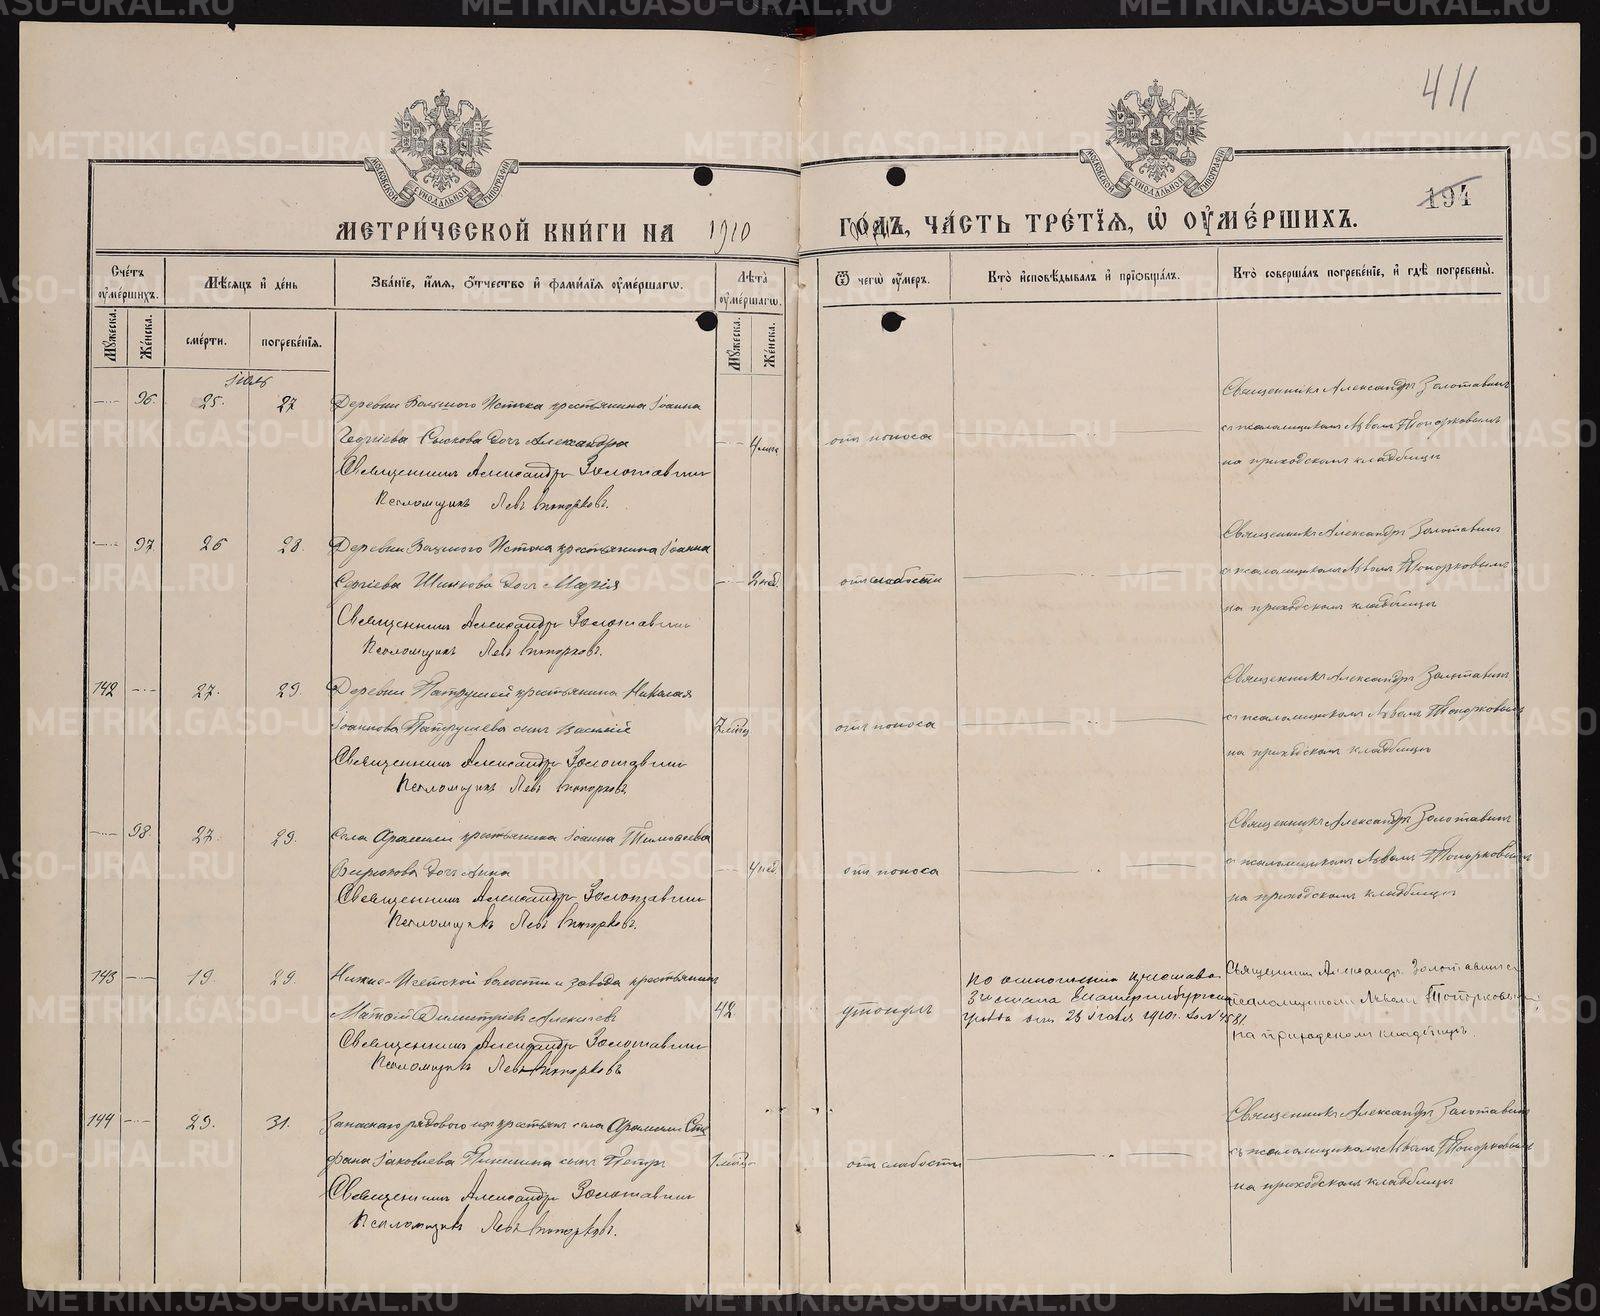 411
194
МОСКОВСКОЙ СѴНОДАЛЬНОЙ ТИПОГРАФІИ
МОСКОВСКОЙ СѴНОДАЛЬНОЙ ТИПОГРАФІИ
МЕТРИ́ЧЕСКОЙ КНИ́ГИ НА 1910 ГО́ДЪ, ЧА́СТЬ ТРЕ́ТІѦ, Ѡ҆ ОУ҆МЕ́РШИХЪ.
Сче́тъ оу҆ме́ршихъ.
Мѣ́сяцъ и҆ де́нь
Зва́ніе, и҆́мѧ, ѻ҆́тчество и҆ фами́лїѧ оу҆ме́ршагѡ.
Лѣ́та оу҆ме́ршагѡ.
Ѿ чегѡ̀ оу҆́меръ.
Кто̀ и҆сповѣ́дывалъ и҆ прїѡбща́лъ.
Кто̀ соверша́лъ погребе́нїе, и҆ гдѣ̀ погребены̀.
Мꙋ́жеска.
Же́нска.
сме́рти.
погребе́нїѧ.
Мꙋ́жеска.
Же́нска.
Іюль
96. 25. 27 Деревни Большого Истока крестьянина Іоанна
Сыскова дочь Александра 4 от поноса
Священникъ Александръ Золотавин
Псаломщикъ Левъ Топорковъ.
Священникъ Александръ Золотавинъ
съ псаломщикомъ Львомъ Топорковымъ
на приходскомъ кладбищѣ
97. 26 28. Деревни Большого Истока крестьянина Іоанна
Сергіева дочь Марія 2 нед. отъ слабости
Священникъ Александръ Золотавин
Псаломщикъ Левъ Топорковъ.
Священникъ Александръ Золотавинъ
съ псаломщикомъ Львомъ Топорковымъ
на приходскомъ кладбищѣ
142 27. 29. Деревни Патрушей крестьянина Николая
Іоаннова Патрушева сынъ Василій 7 отъ поноса
Священникъ Александръ Золотавин
Псаломщикъ Левъ Топорковъ
Священникъ Александръ Золотавинъ
съ псаломщикомъ Львомъ Топорковымъ
на приходскомъ кладбищѣ
98. 27. 29. Села Арамили крестьянина Іоанна Тимофеева
Бирюкова дочь Анна 4 нед. отъ поноса
Священникъ Александръ Золотавин
Псаломщикъ Левъ Топорковъ.
Священникъ Александръ Золотавинъ
съ псаломщикомъ Львомъ Топорковымъ
на приходскомъ кладбищѣ
143 19. 29. Нижне-Исетской волости и завода крестьянинъ
Димитріев 42 утонулъ
Священникъ Александръ Золотавин
Псаломщикъ Левъ Топорковъ
по отношенію пристава
3го стана Екатеринбургскаго
уѣзда отъ 28 Іюля 1910г. за № 4581.
Священникъ Александръ Золотавинъ съ
псаломщикомъ Львомъ Топорковымъ
на приходскомъ кладбищѣ.
144 29. 31. Запаснаго рядового изъ крестьянъ села Арамили Сте
фана Іаковлева сынъ Петръ 1 отъ слабости
Священникъ Александръ Золотавин
Псаломщикъ Левъ Топорковъ.
Священникъ Александръ Золотавинъ
съ псаломщикомъ Львомъ Топорковымъ
на приходскомъ кладбищѣ
METRIKI.GASO-URAL.RU